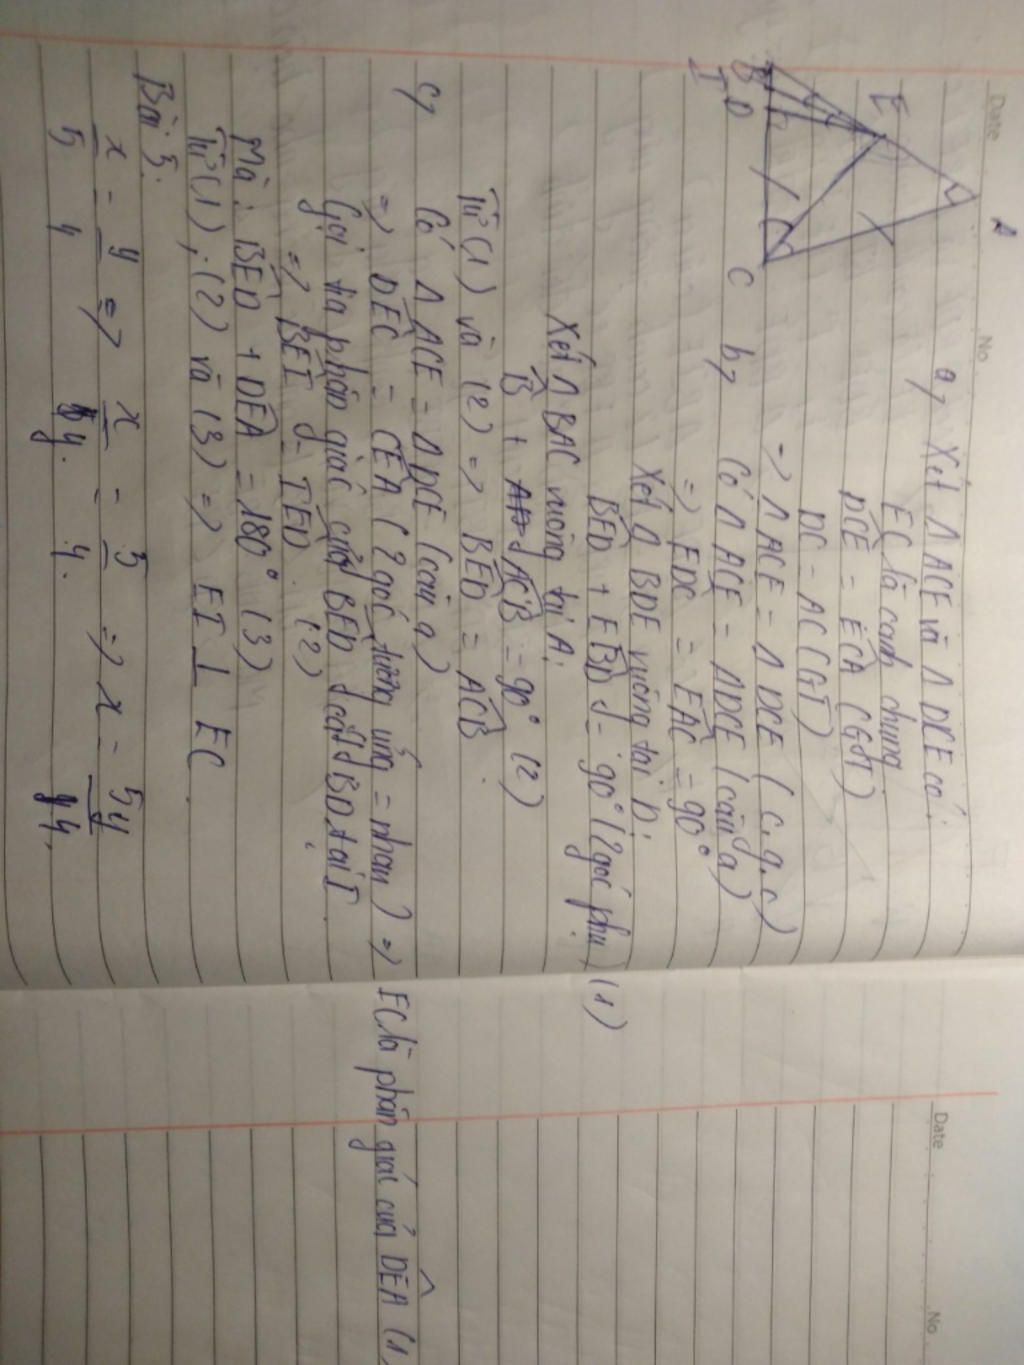 Date No
A
E
B D C
I
a, Xét Δ ACE và Δ DCE có:
EC là cạnh chung
DCE = ECA (GT)
DC = AC (GT)
=> Δ ACE = Δ DCE (c.g.c)
b, Có Δ ACE = ΔDCE (câu a)
=> EDC = EAC = 90°
Xét Δ BDE vuông tại D:
BED + EBD = 90° (2 góc phụ) (1)
Xét Δ BAC vuông tại A:
B + ACB = 90° (2)
Từ (1) và (2) => BED = ACB
c, Có Δ ACE = Δ DCE (câu a)
=> DEC = CEA (2 góc tương ứng = nhau) => EC là phân giác của DEA (1)
Gọi tia phân giác của BED cắt BD tại I
=> BEI = IED (2)
Mà: BED + DEA = 180° (3)
Từ (1), (2) và (3) => EI ⊥ EC
Bài 3:
x/5 = y/4 => x/y = 5/4 => x = 5y/4
Date No